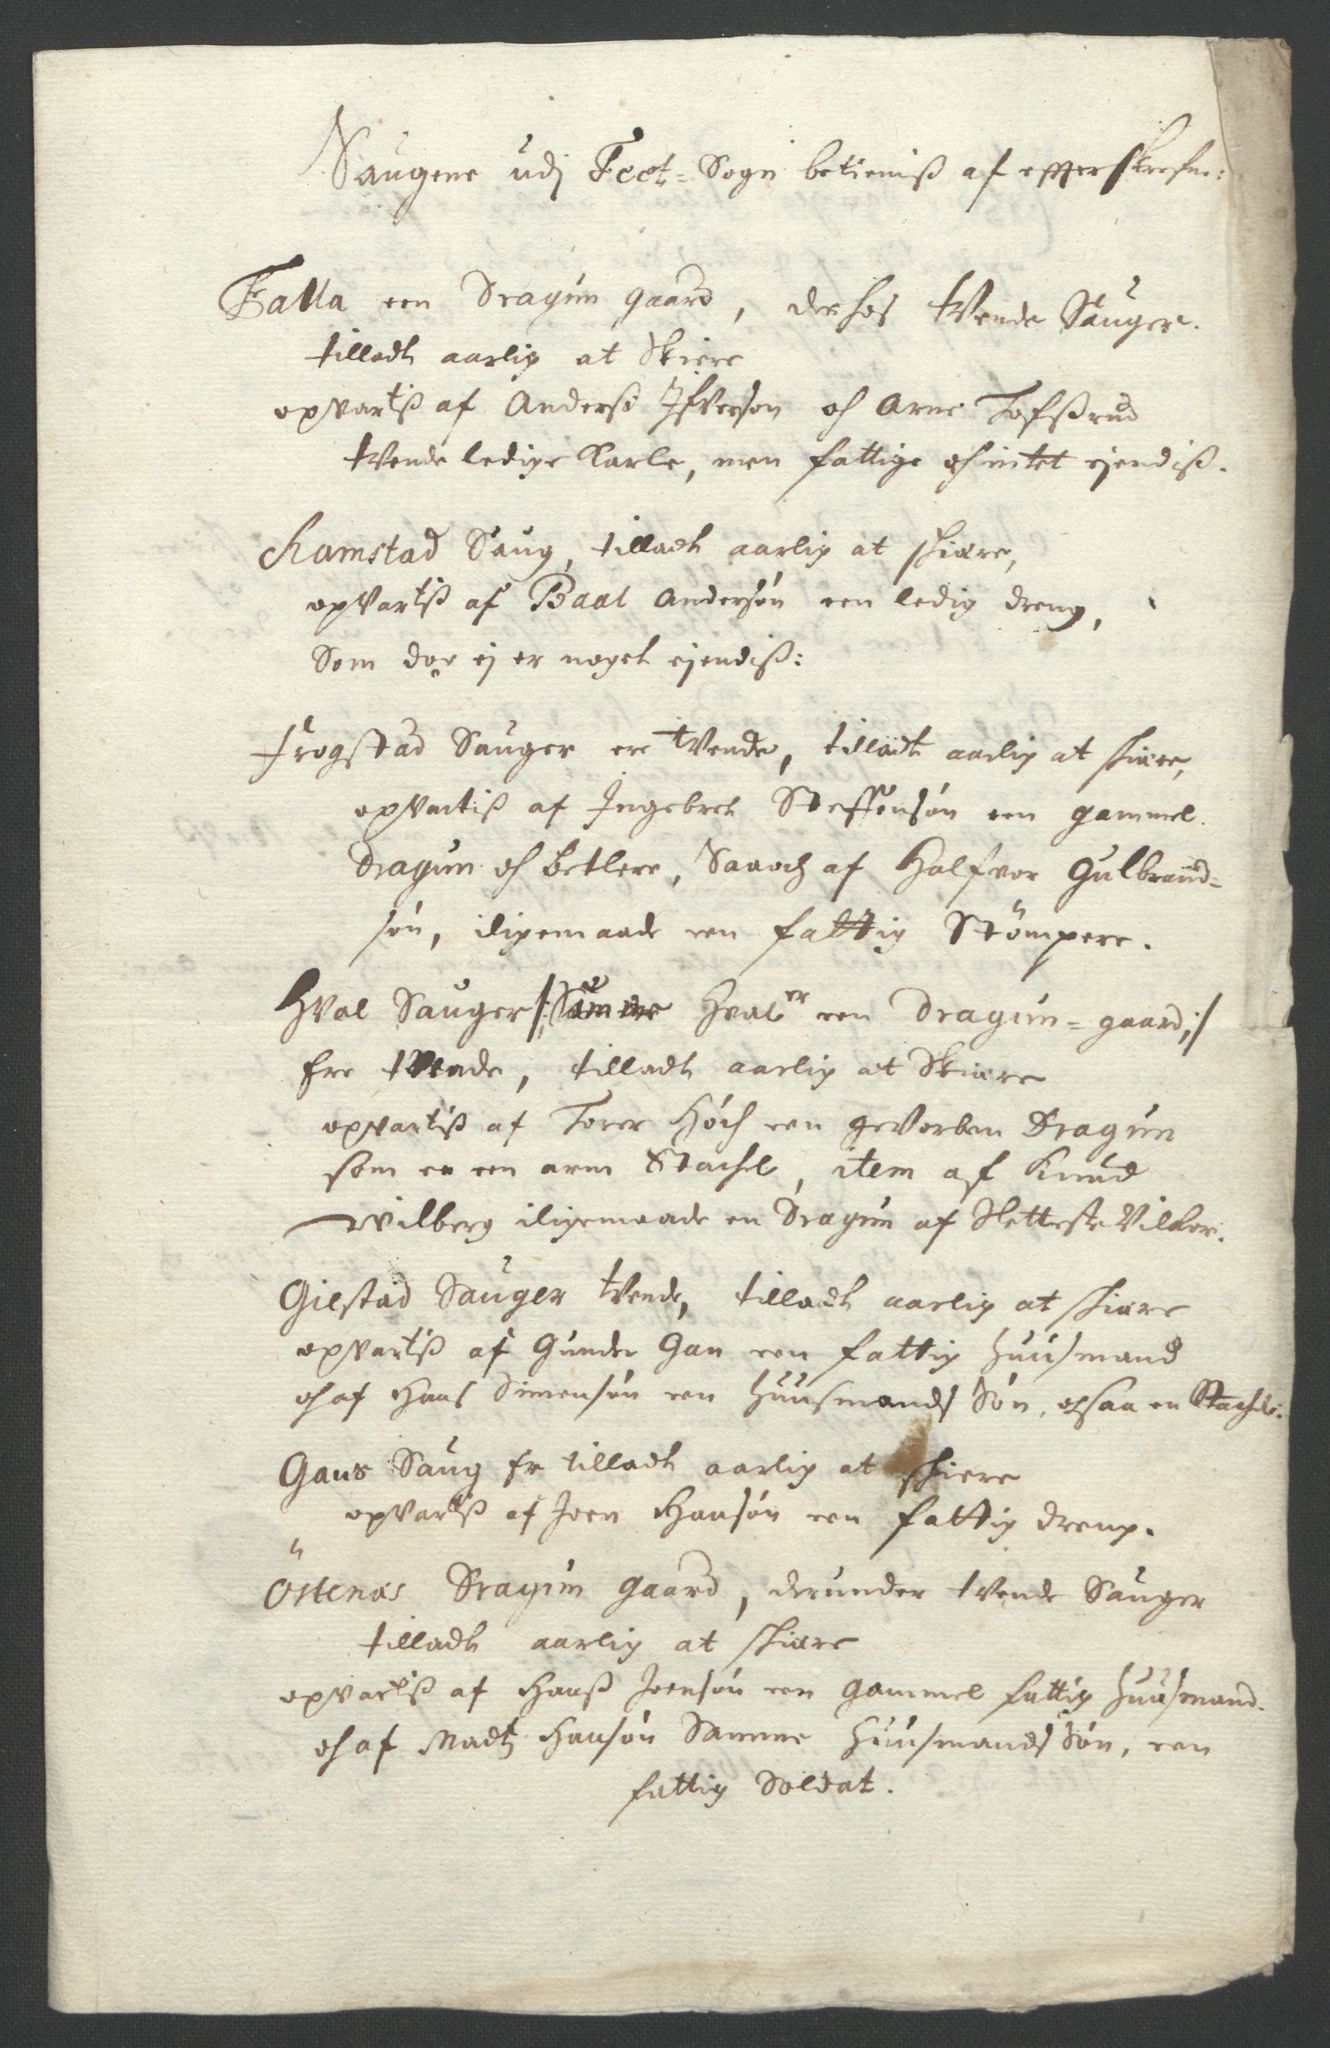 Saugene udj Feet-Sogn betieniß af effterskrefne:
Falla een Dragun gaard, derhos tVende Sauger.
tilladt aarlig at Skiere
opvartß af Anderß Ifverson och Arne Tofßrud
tVende ledige Karle, men fattige och intet ejendiß.
Ramstad Saug, tilladt aarlig at skiære,
opVartß af Paal Andersøn een ledig dreng,
Som dog ej er noget ejendiß:
Frogstad Sauger ere tVende, tilladt aarlig at skiære,
opVartiß af Ingebret Steffensøn een gammel
dragun och betlere, Saaoch af Halfvor Gulbrand-
søn, iligemaade een fattig Stömpere.
Hval Sauger /: Hval er een Dragun-gaard, :/
Ere tVende, tilladt aarlig at Skiære
opvartiß af Torer Høch een geVorben Dragun
som er een arm Stachel, item af Knud
Wilberg iligemaade en Dragun af Sletteste Vilkor.
Gielstad Sauger tVende, tilladt aarlig at skiære
opVartß af Gunder Gan een fattig Huusmand
och af Hans Simensøn een Huusmands Søn, ochsaa en Stachel.
Gans Saug Er tilladt aarlig at skiere
opVartß af Joen Hansøn een fattig dreng.
Östenæs Dragun gaard, derunder tVende Sauger
tilladt aarlig at skiære
opvartß af Hanß Joensøn een gammel fattig Huusmand.
och af Madtz Hansøn Samme Huusmands Søn, een
fattig Soldat.